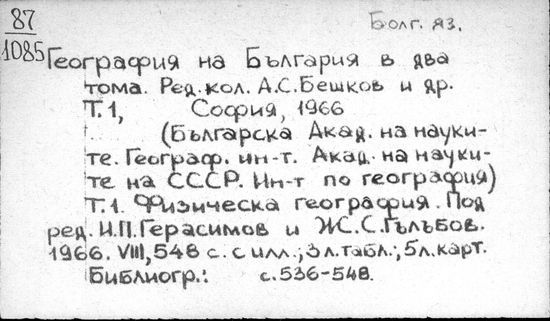 87
1085
Болг. яз.
География на България в два
тома. Ред. кол. А.С.Бешков и др.
Т.1, София, 1966
(Българска Акад. на науки-
те. Географ. ин-т. Акад. на науки-
те на СССР. Ин-т по география)
Т.1. Физическа география. Под
ред. И.П.Герасимов и Ж.С.Гълъбов.
1966. VIII, 548 с. с илл.; 3л.табл.; 5л.карт.
Библиогр.: с.536-548.